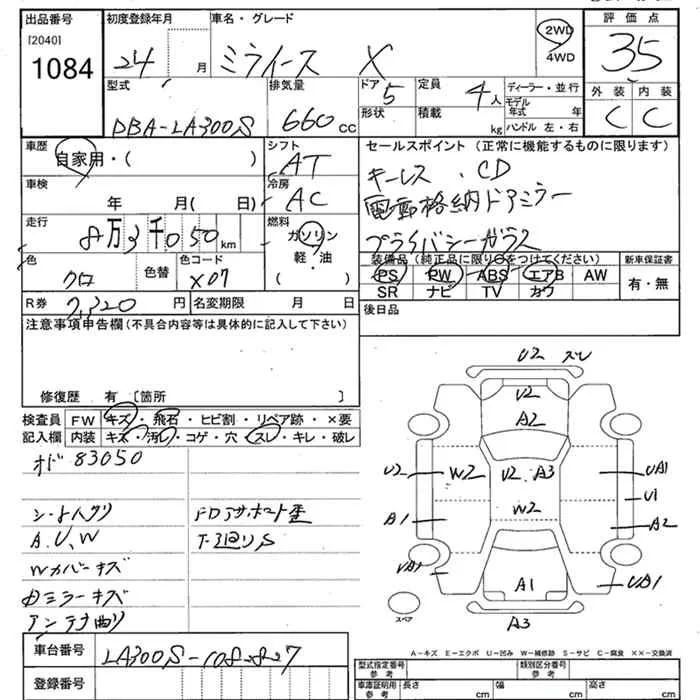 出品番号 初度登録年月 車名・グレード 評価点
[2040] 1084 24 月 ミライース X 2WD 4WD 35
型式 排気量 ドア 5 定員 4人 ディーラー・並行 外装 内装
DBA-LA300S 660cc 形状 積載 kg モデル年式 年 ハンドル 左・右 C C
車歴 シフト セールスポイント (正常に機能するものに限ります)
自家用・( ) AT キーレス・CD
車検 冷房 電動格納ドアミラー
年 月( 日) AC プライバシーガラス
走行 燃料
8万3千050km ガソリン 軽・油 ( )
色 色替 色コード 装備品(純正品に限り○をつけてください) 新車保証書
クロ X07 PS PW ABS エアB AW 有・無
SR ナビ TV カワ
R券 7,320円 名変期限 月 日 後日品
注意事項申告欄(不具合内容等は具体的に記入して下さい)
修復歴 有 [箇所 ]
検査員 FW キズ・飛石・ヒビ割・リペア跡・×要
記入欄 内装 キズ・汚れ・コゲ・穴・スレ・キレ・破レ
オド 83050
シートヘタリ FDアサポート歪
A.U.W 下廻りS
Wカバーキズ
Dミラーキズ
アンテナ曲り
U2 スレ
U2
A2
U2 W2 U2.A3 UA1
U1
A1 W2 A2
UA1 A1 UA1
スペア A3
A-キズ E-エクボ U-凹み W-補修跡 S-サビ C-腐食 ××-交換済
車台番号
登録番号
型式指定番号 参考 類別区分番号 参考
車庫証明用 参考 長さ cm 幅 cm 高さ cm